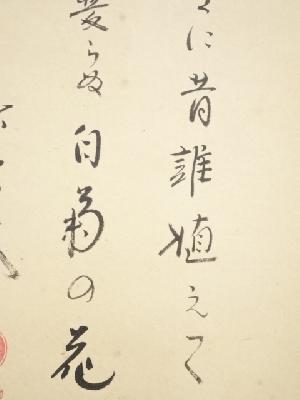 に昔誰植えて
変らぬ白菊の花